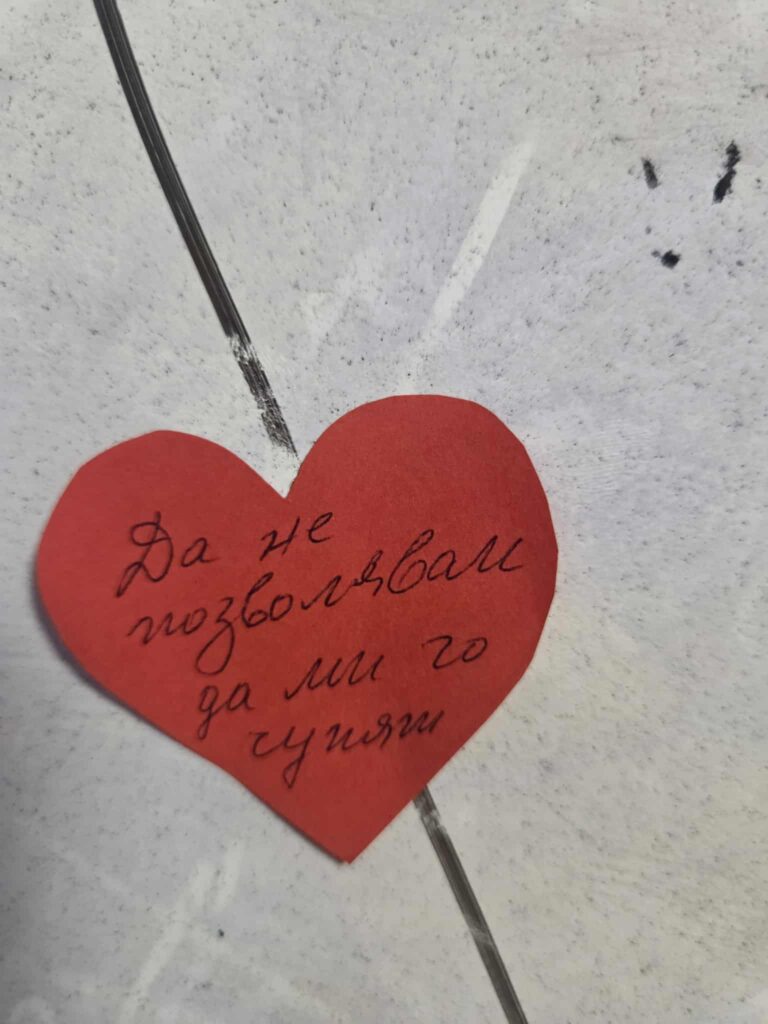 Да не
позволявам
да ми го
чупят